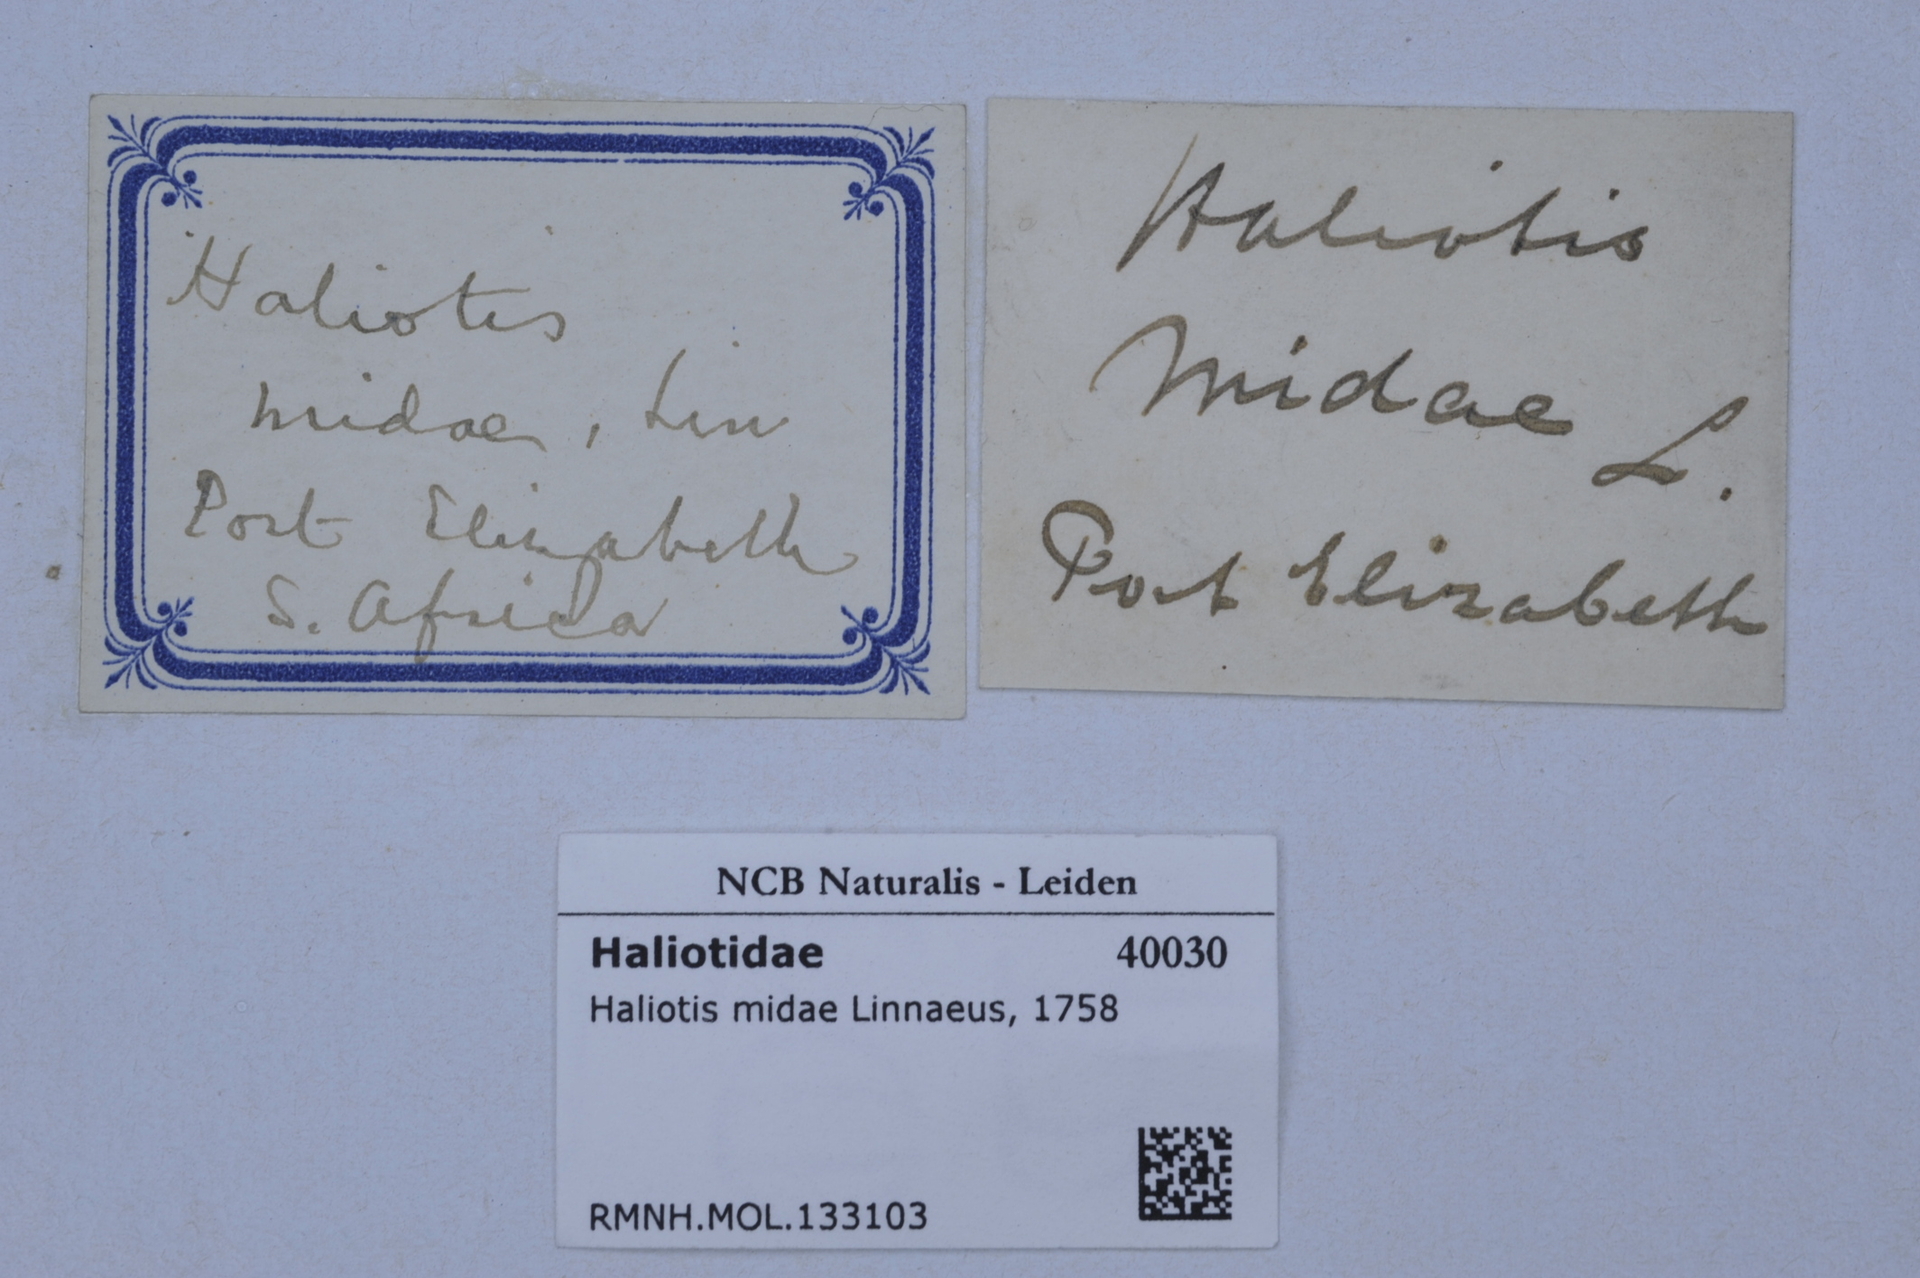 Haliotis
midae, Lin
Port Elizabeth
S. Africa
Haliotis
Midae L.
Port Elizabeth
NCB Naturalis - Leiden
Haliotidae 40030
Haliotis midae Linnaeus, 1758
RMNH.MOL.133103